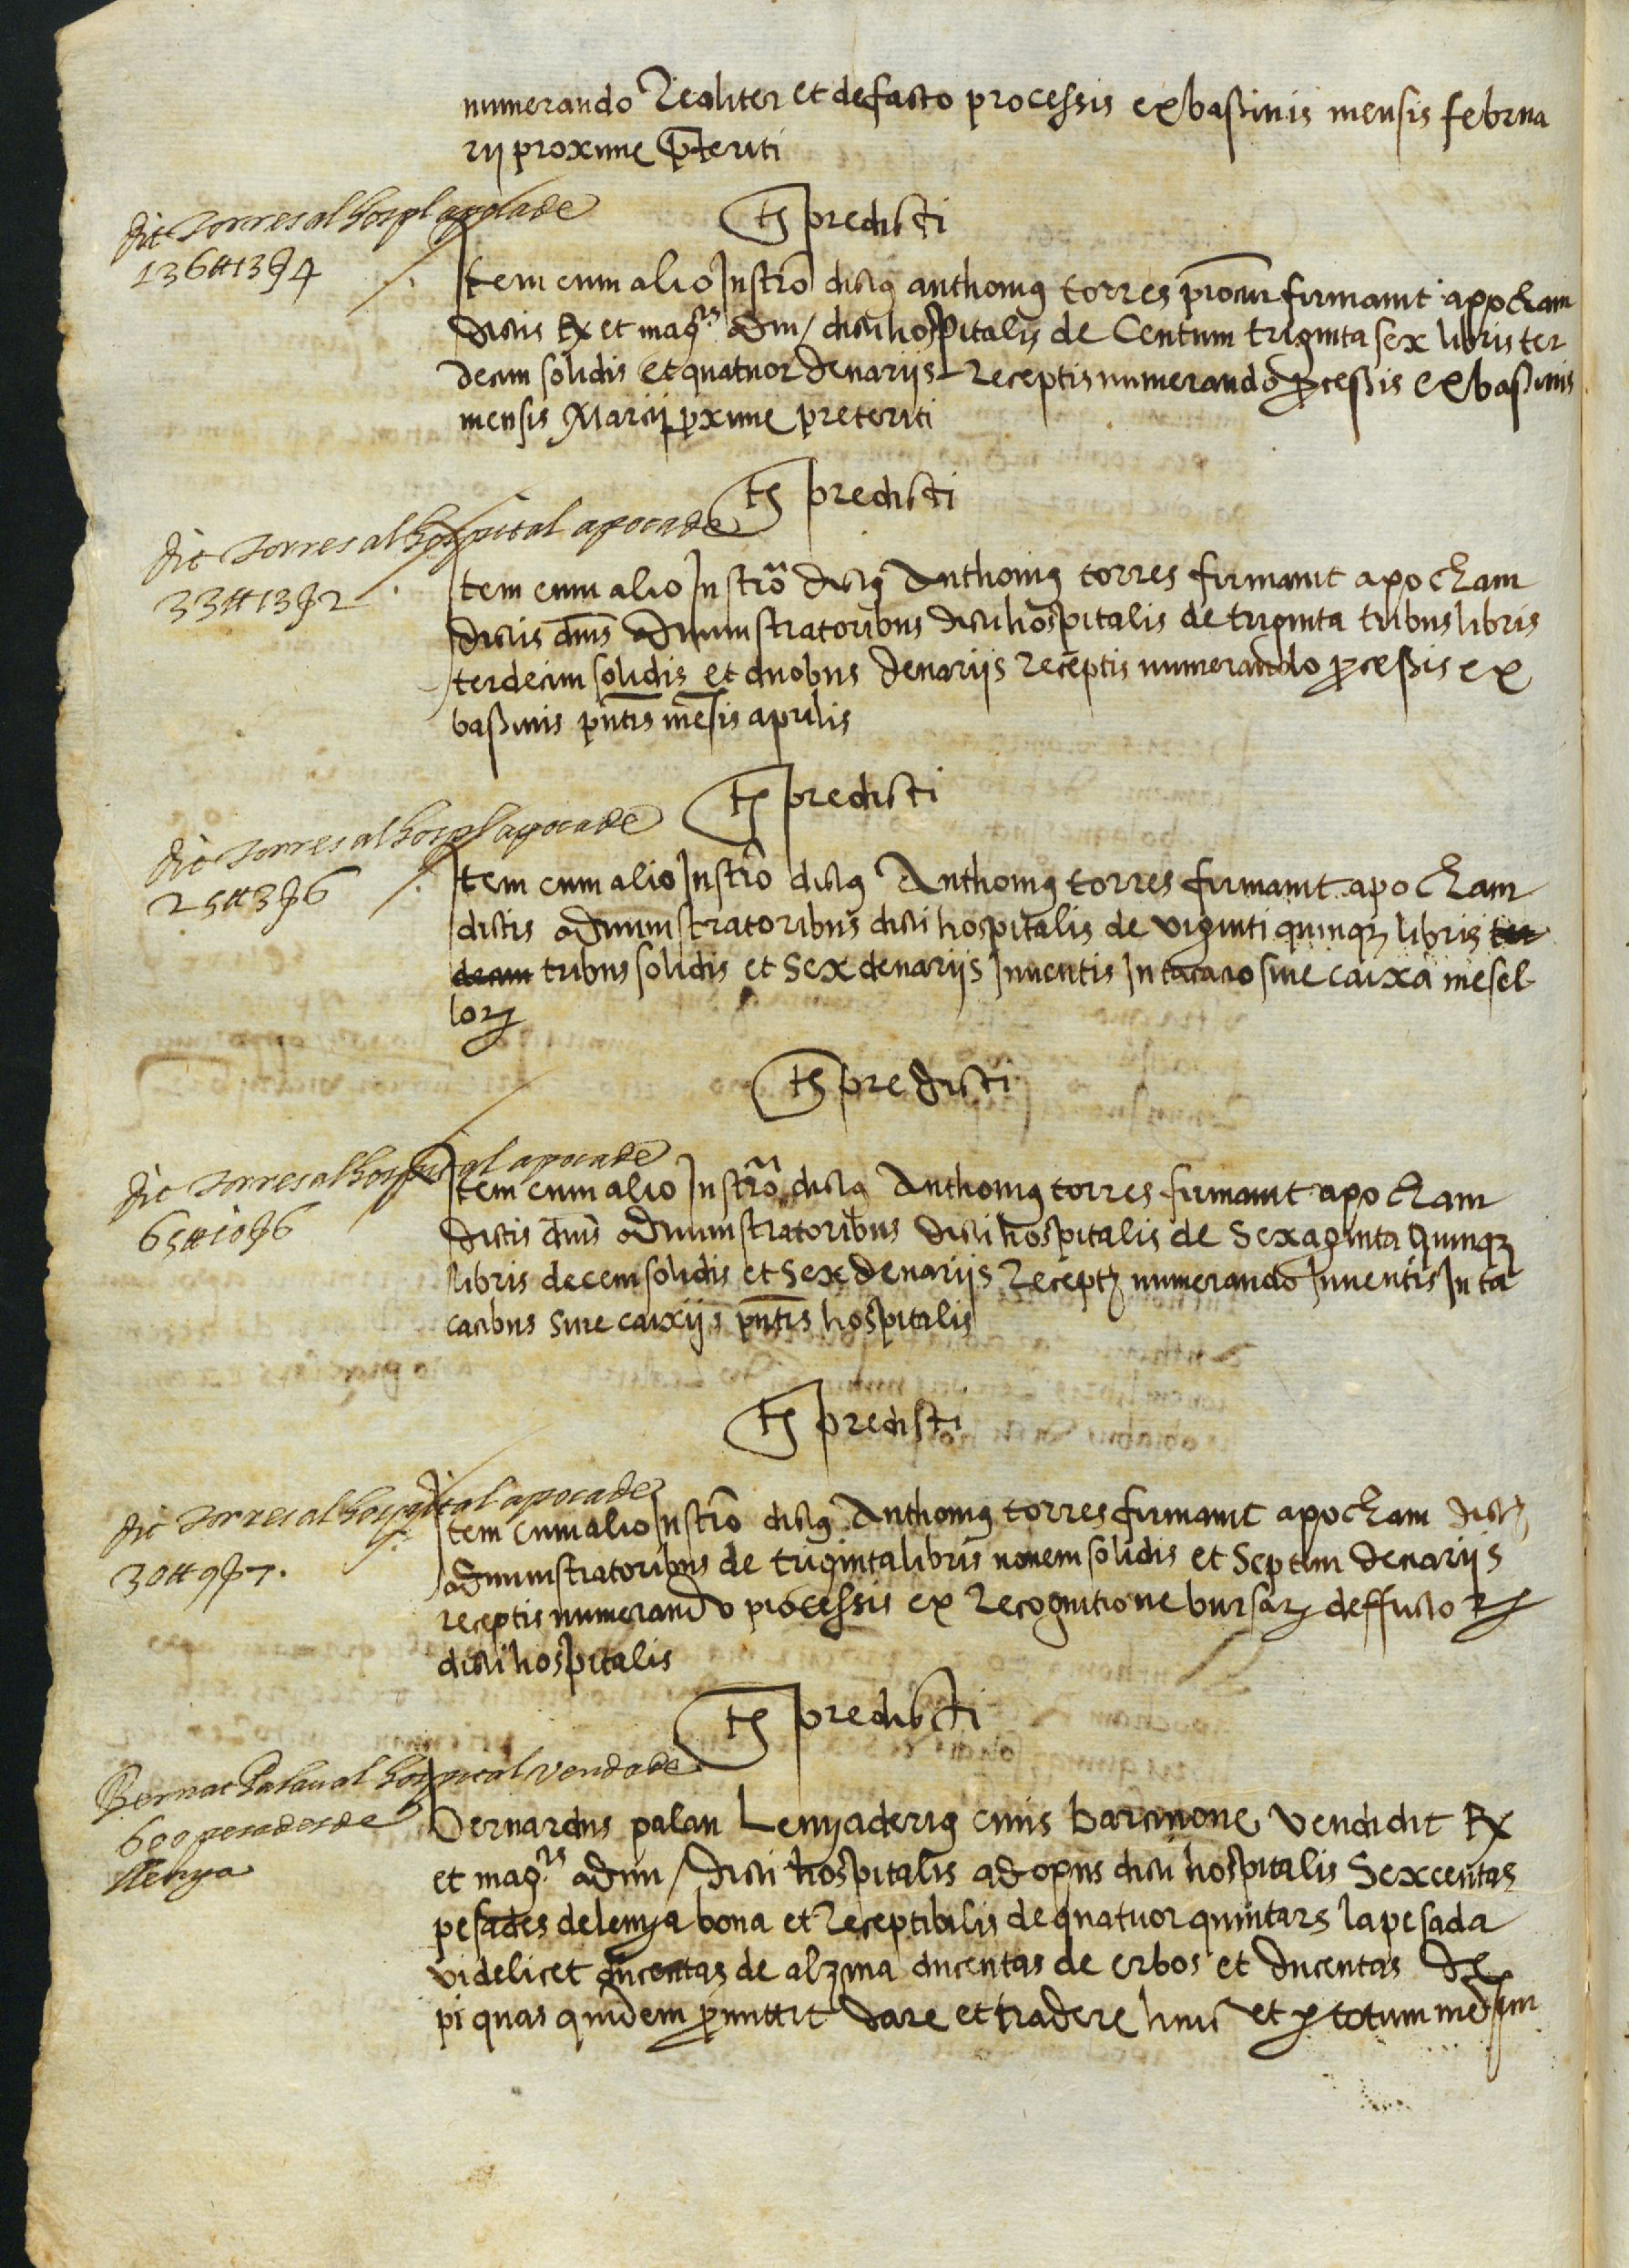 numerando Realiter et de facto processis ex bassinis mensis februa
rij proxime preteriti
dit Torres al hospl apocha de
136 ₶ 13 ẜ 4
ts predicti
Item cum alio Instro dictus anthonius torres procur firmavit apocham
dictis Rx et magcis admi / dicti hospitalis de Centum triginta sex libris ter
decim solidis et quatuor denariis receptis numerando processis ex bassinis
mensis Marcij proxime preteriti
ts predicti
dit Torres al hospital apoca de
33 ₶ 13 ẜ 2
Item cum alio Instro dictus Anthonius torres firmavit apocham
dictis dnis administratoribus dicti hospitalis de triginta tribus libris
terdecim solidis et duobus denariis receptis numerando processis ex
bassinis pntis mensis aprilis
ts predicti
dit Torres al hospl apoca de
25 ₶ 3 ẜ 6
Item cum alio Instro dictus Anthonius torres firmavit apocham
dictis administratoribus dicti hospitalis de viginti quinque libris ter
decim tribus solidis et Sex denariis Inventis In tacaro sive caixa mesel
lorum
ts predicti
dit Torres al hospital apoca de
65 ₶ 10 ẜ 6
Item cum alio Instro dictus Anthonius torres firmavit apocham
dictis dnis administratoribus dicti hospitalis de Sexaginta Quinque
libris decem solidis et Sex denariis Receptis numerando Inventis In ta
caribus Sive caixijs pntis hospitalis
ts predicti
dit Torres al hospital apoca de
30 ₶ 9 ẜ 7.
Item Cum alio Instro dictus Anthonius torres firmavit apocham dictis
administratoribus de triginta libris novem solidis et Septem denariis
receptis numerando processis ex Recognitione bursarum deffuctorum
dicti hospitalis
ts predicti
Bernat Palau al hospital venda de
600 pesades de
llenya
Bernardus palau Lenyaderius civis Barcinone vendidit Rx
et magcis admi / dicti hospitalis ad opus dicti hospitalis Sexcentas
pesades de lenya bona et Receptibilis de quatuor quintars la pesada
videlicet ducentas de alzina ducentas de erbos et ducentas de
pi quas quidem promittit dare et tradere hinc et per totum mensem